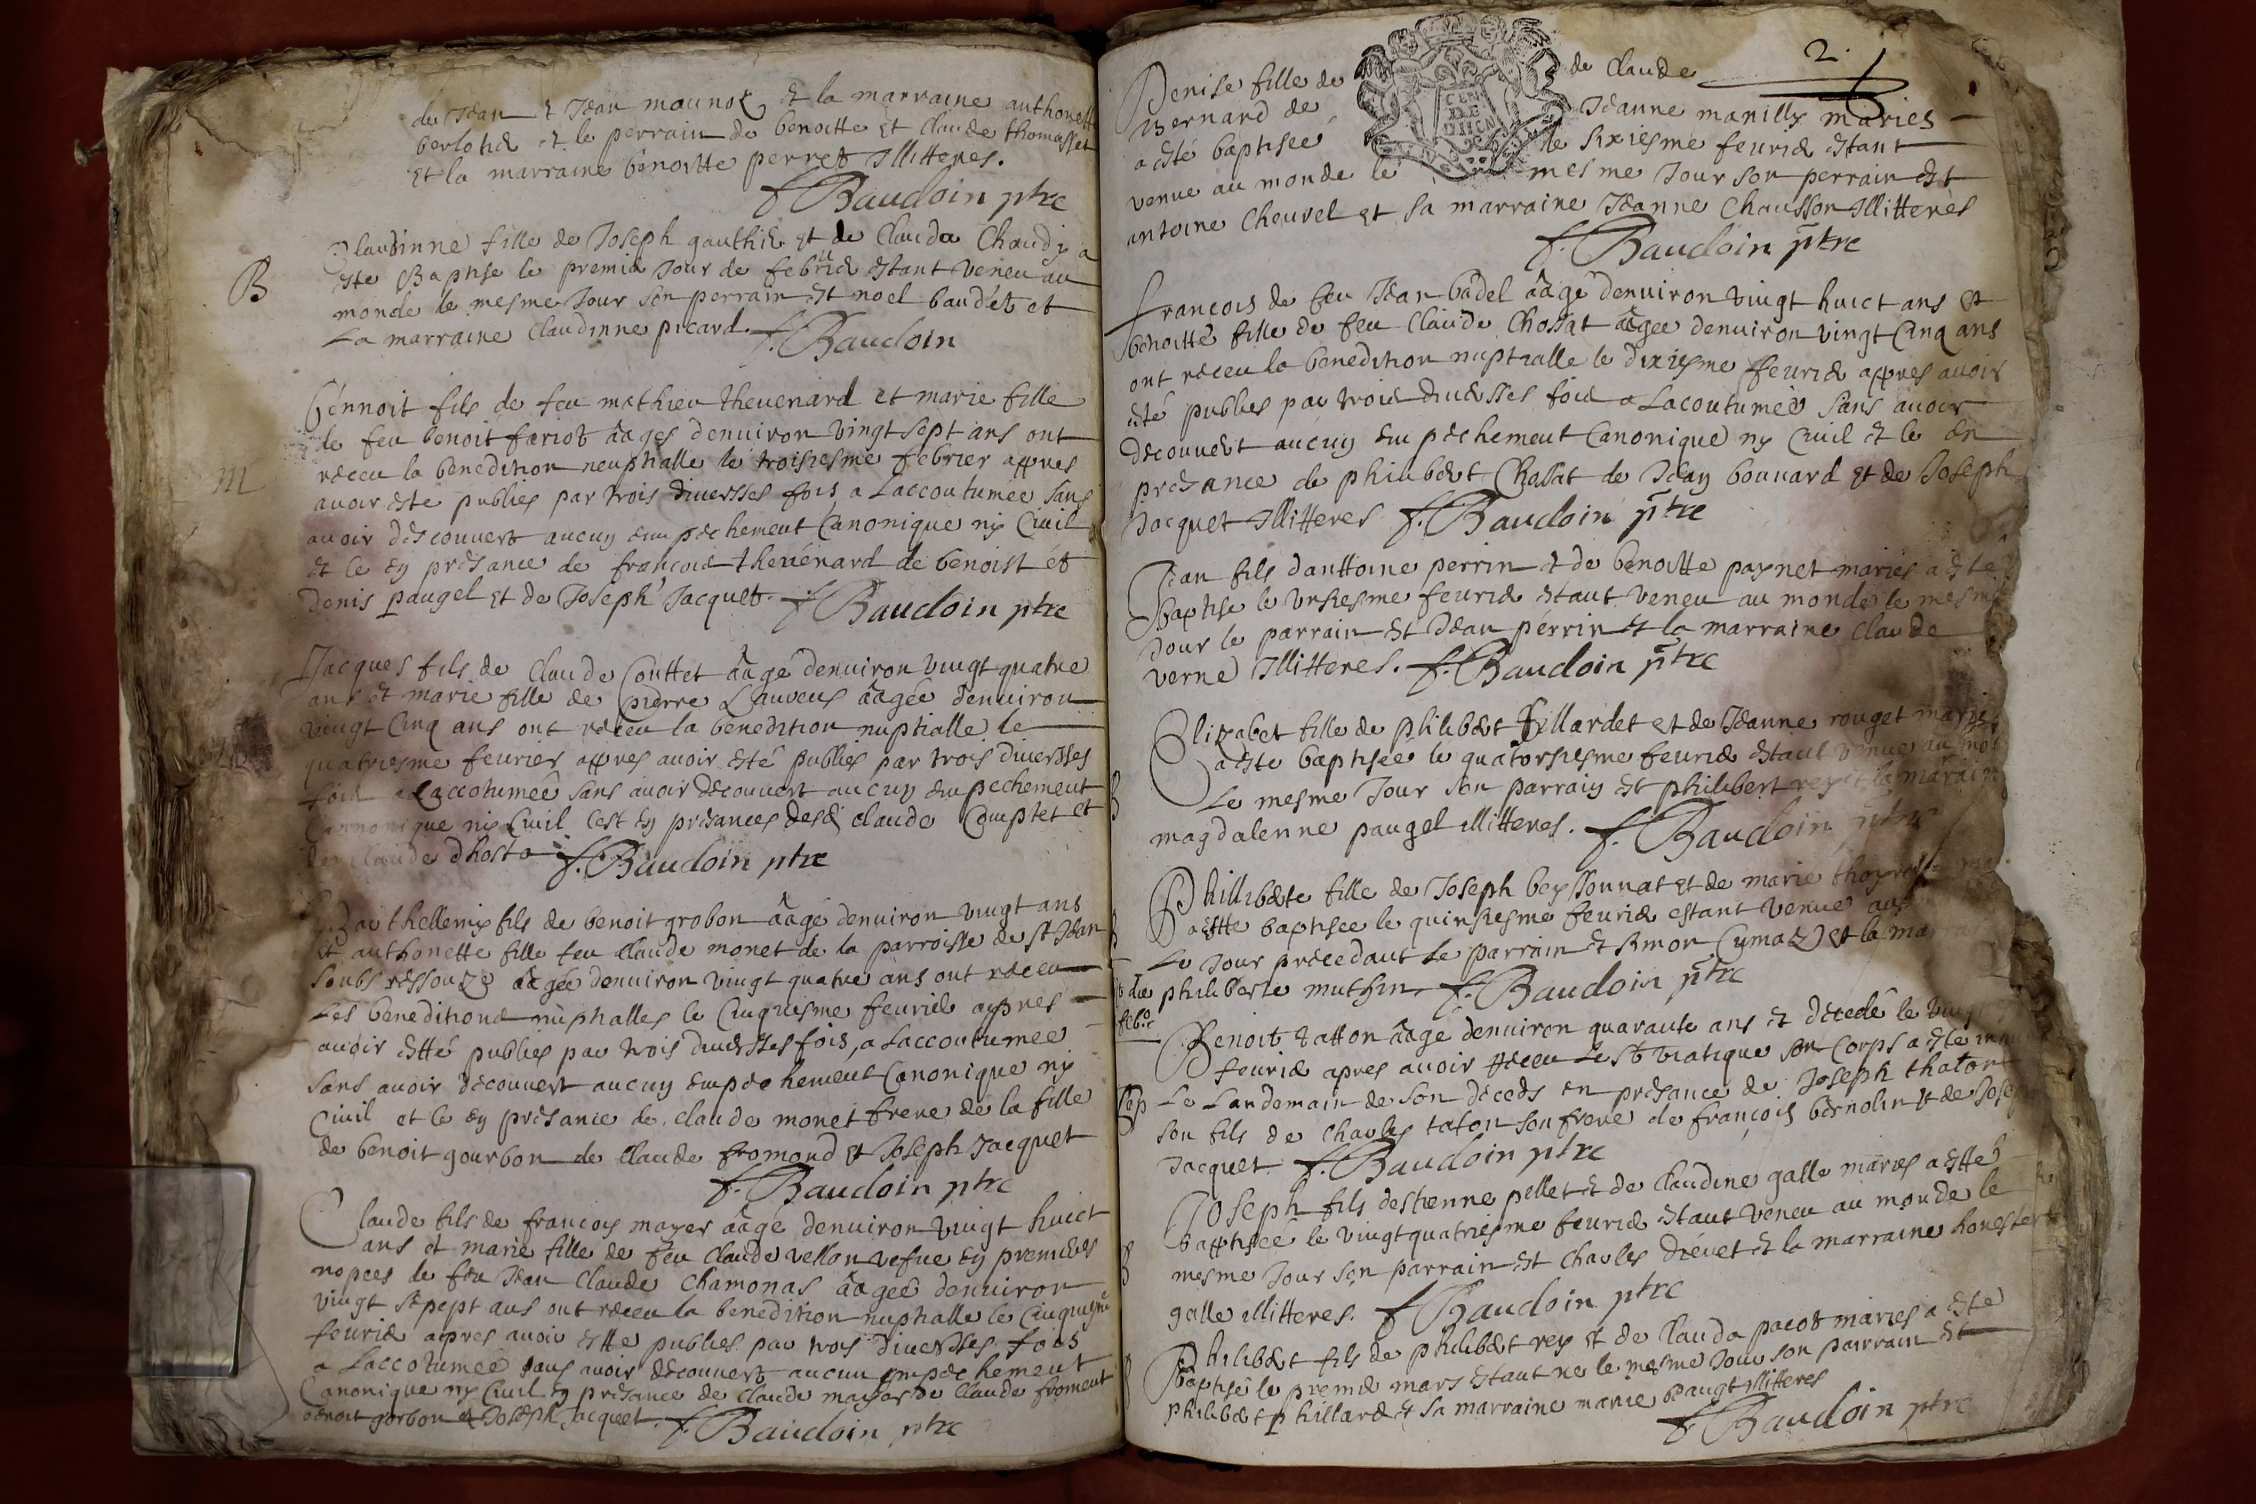 de Jean et Jean maunoz et la marraine anthonette
berlotid et le perrain de benoitte et Claude thomasset
et la marraine benoitte perret Illitteres.
f Baudoin ptre
Claudinne fille de Joseph gauthie et de Clauda Chaudy a
B
esté Baptise le premie Jour de febrie estant veneu au
monde le mesme Jour son perrain est noel baudet et
La marraine Claudinne picard. f. Baudoin
Bennoit fils de feu mathieu thevenard et marie fille
de feu benoit fariot aages denuiron vingt sept ans ont
M
receu la benedition neuptialle le troisiesme febrier appres
auoir este publies par trois diuersses fois a Laccoutumée sans
auoir descouuert aucuy empechement Canonique ny Ciuil
et le ey presance de francois thevénard de benoist et
denis paugel et de Joseph Jacquet. f Baudoin ptre
Jacques fils de Claude Couttet aagé denuiron vingt quatre
ans et marie fille de pierre Lauveus aagée denuiron
vingt Cinq ans ont receu la benedition nuptialle le
quatriesme feurier appres auoir esté publies par trois diuersses
fois a Laccotumée sans auoir decouuert aucuy empechement
Cannonique ny Ciuil Cest ey presances desdi claude Comptet et
de Claude dhosta f. Baudoin ptre
Barthellemy fils de benoit grobon aagé denuiron vingt ans
et anthonette fille feu Claude monet de la parroisse de st Jean
soubs ressouze aagée denuiron vingt quatre ans ont receu
Les beneditions nuptialles le Cinquiesme feurie appres
auoir estté publies par trois diuersses fois, a Laccoutumee
sans auoir decouuert aucuy empechement Canonique ny
Ciuil et le ey presance de claude monet frere de la fille
de benoit gourbon de Claude fromond et Joseph Jacquet
f. Baudoin ptre
Claude fils de francoy mayer aagé denuiron vingt huict
ans et marie fille de feu Claude vellon vefue ey premieres
nopces de feu Jean Claude Chamonas aagée denuiron
vingt st pept ans ont receu la benedition nuptialle le Cinquiesme
feurie apres auoir estte publies par trois diuersses fois
a Laccotumée sans auoir decouuert aucun empechement
Canonique ny Ciuil ey presance de claude mayer de Claude froment
benoit gorbon et Joseph Jacquet. f. Baudoin ptre
2
Denise fille de de Claude
Bernard de Jeanne manilly mariés
a esté baptisée le sixiesme feurie estant
venue au monde le mesme Jour son perrain est
antoine Cheurel et sa marraine Jeanne Chausson Illitteres
f. Baudoin ptre
francois de feu Jean badel aagé denuiron vingt huict ans et
benoitte fille de feu Claude Chossat aagee denuiron vingt Cinq ans
ont receu la benedition nuptialle le dixiesme feurie appres auoir
esté publies par trois diuersses fois a Lacoutumée sans auoir
decouuert aucuy empechement Canonique ny Ciuil et le en
presance de philibert Chossat de Jean bonnard et de Joseph
Jacquet Illitteres f. Baudoin ptre
Jean fils danttoine perrin et de benoitte paynet mariés a esté
Baptise le unsiesme feurie estant veneu au monde le mesme
Jour le parrain est Jean perrin et la marraine Claude
verne Illitteres. f. Baudoin ptre
Elizabet fille de philibert fillardet et de Jeanne rouget mariés
a este baptisée le quatorsiesme feurie estant venue au mon
B
Le mesme Jour son parrain est philibert rey et la marraine
magdalenne paugel illitteres. f. Baudoin ptre
Phillibette fille de Joseph beyssonnat et de marie
B
a estte baptisee le quinsiesme feurie estant venue au
Le Jour precedant Le parrain est simon Cymaz et la ma
philiberte muthin f. Baudoin ptre
feb.e
Benoit tatton aagé denuiron quarante ans et decedé le vingt
feurie apres auoir receu Le st viatique son Corps a este in
Sep
Le Landemain de son deceds en presance de Joseph thaton
son fils de Charles taton son frere de françois bernolin et de Jose
Jacquet f. Baudoin ptre
Joseph fils destienne pellet et de Claudine galle maries a estté
baptisée le vingt quatriesme feurie estant veneu au monde le
B
mesme Jour son parrain est Charles drévet et la marraine honeste
galle illitteres. f Baudoin ptre
Philibert fils de philibert rey et de Clauda pacot mariés a esté
Baptisé le premie mars estant ne le mesme Jour son parrain est
philibert phillard et sa marraine marie Paugt illitteres
f. Baudoin ptre